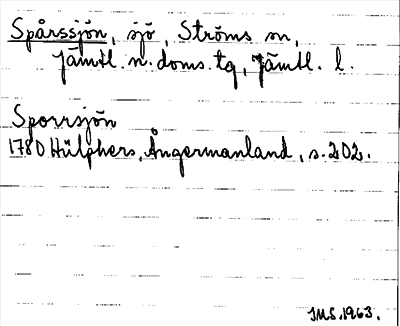 Spårssjön, sjö, Ströms sn,
Jämtl. n. doms. tg, Jämtl. l.
Sporrsjön
1780 Hülphers, Ångermanland, s. 202.
JMS. 1963.